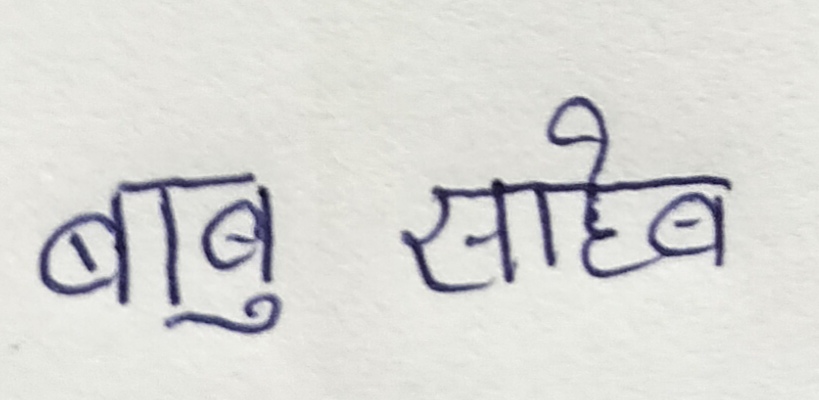 बाबु साहेब